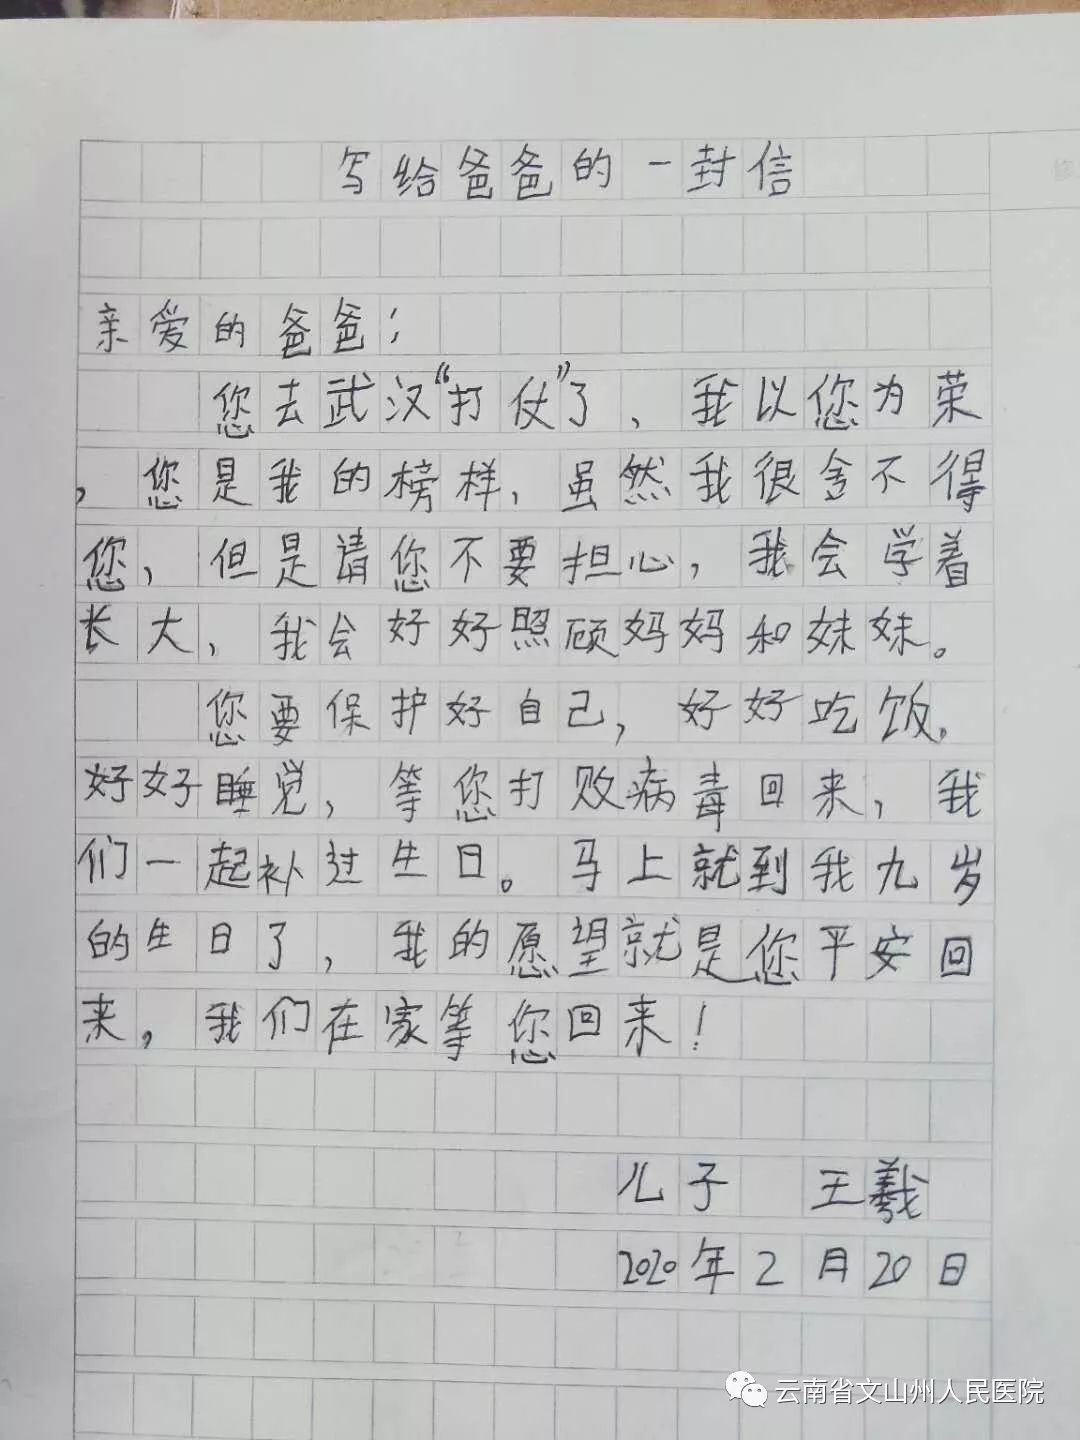 写给爸爸的一封信
亲爱的爸爸:
您去武汉“打仗”了,我以您为荣
,您是我的榜样,虽然我很舍不得
您,但是请您不要担心,我会学着
长大,我会好好照顾妈妈和妹妹。
您要保护好自己,好好吃饭,
好好睡觉,等您打败病毒回来,我
们一起补过生日。马上就到我九岁
的生日了,我的愿望就是您平安回
来,我们在家等您回来!
儿子 王羲
2020年2月20日
云南省文山州人民医院